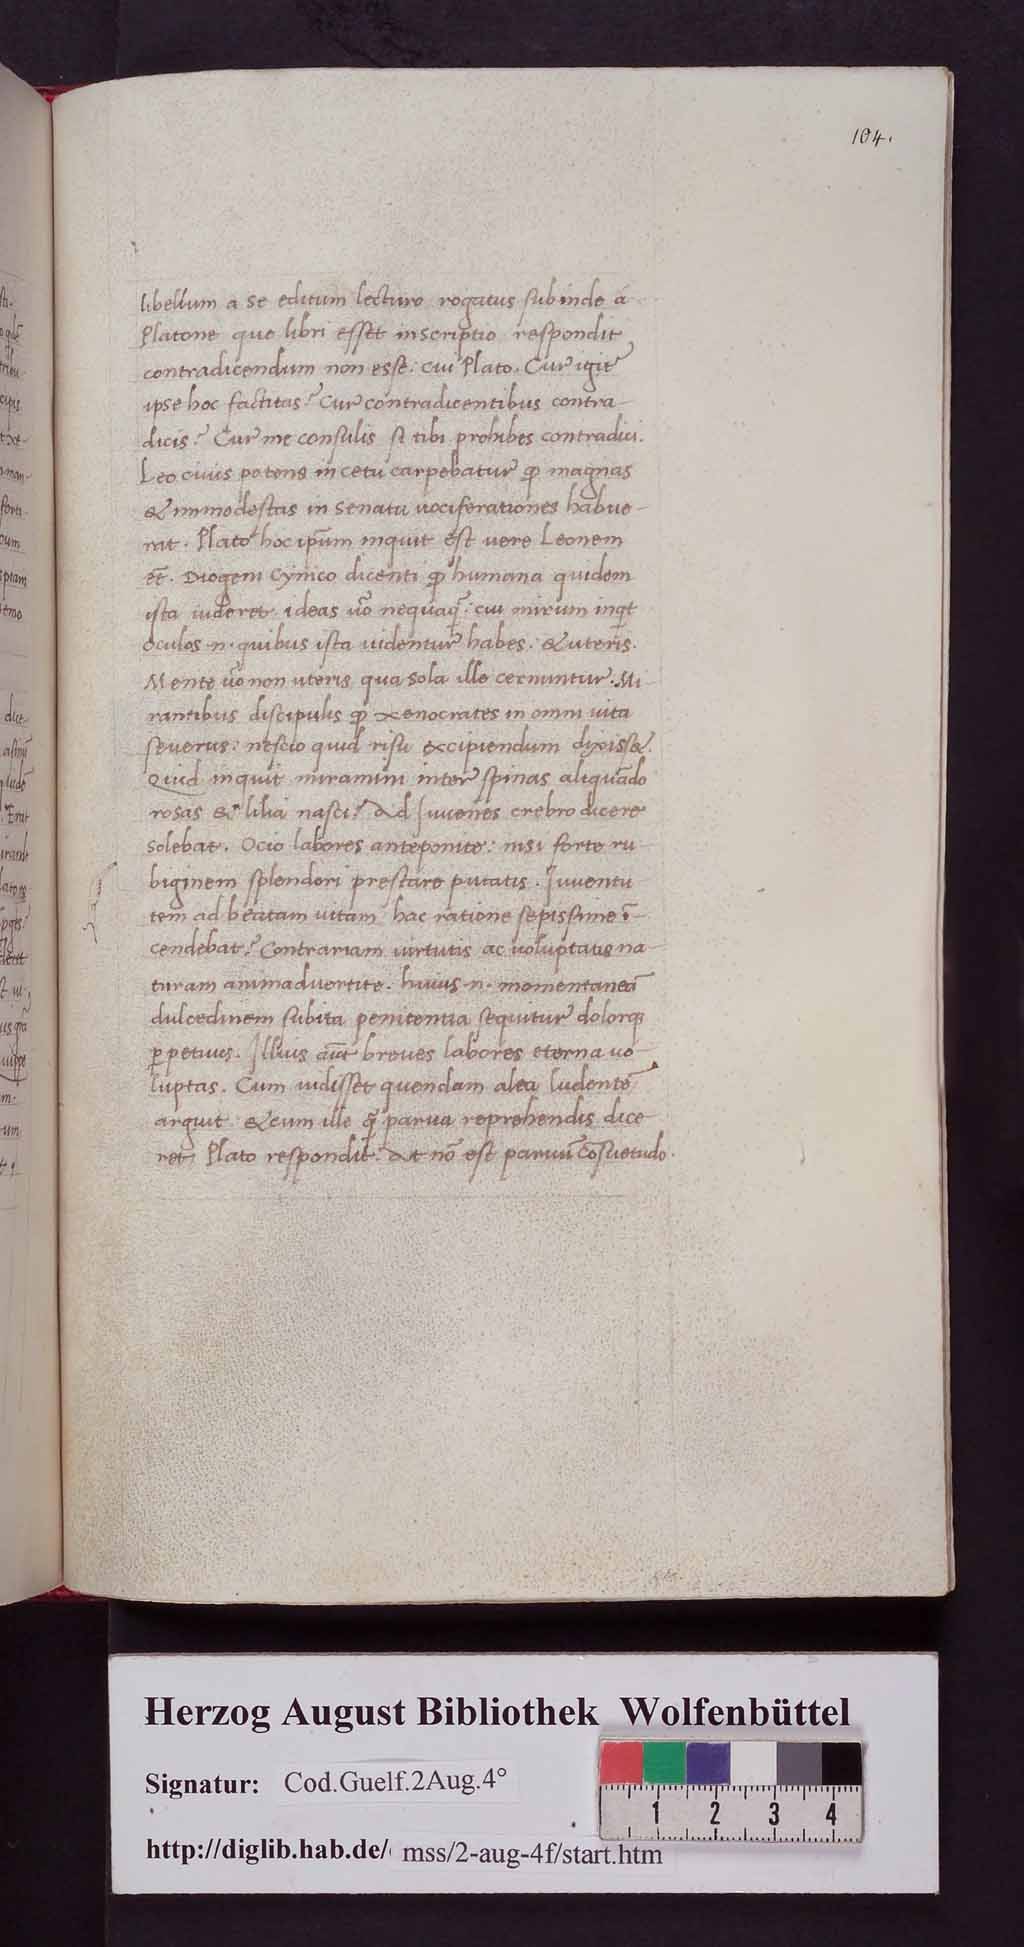 104.
libellum a se editum lecturo rogatus subinde a
Platone que libri esset inscriptio respondit
contradicendum non esse: cui Plato. Cur igit᷑
ipse hoc factitas? Cur contradicentibus contra-
dicis? Cur me consulis si tibi prohibes contradici.
Leo ciuis potens in cetu carpebatur ꝙ magnas
& immodestas in senatu uociferationes habue-
rat. Plato hoc ip̄um inquit est uere Leonem
eē. Diogeni Cynico dicenti ꝙ humana quidem
ista uideret ideas uō nequaq̄: cui mirum inqt
oculos .n. quibus ista uidentur habes. & uteris.
Mente uō non uteris qua sola ille cernuntur. Mi-
rantibus discipulis ꝙ xenocrates in omni uita
seuerus: nescio quid risu excipiendum dixisset.
Quid inquit miramini inter spinas aliquādo
rosas & lilia nasci? Ad Iuuenes crebro dicere
solebat. Ocio labores anteponite: nisi forte ru-
biginem splendori prestare putatis. Iuuentu-
tem ad beatam uitam hac ratione sepissime ī-
cendebat? Contrariam uirtutis ac uoluptatis na-
turam animaduertite. huius .n. momentaneā
dulcedinem subita penitentia sequitur dolorqꝫ
ꝑpetuus. Illius aūt breues labores eterna uo-
luptas. Cum uidisset quendam alea ludentē
arguit & cum ille q̄ parua reprehendis dice-
ret Plato respondit. At nō est paruū cōsuetudo.
Herzog August Bibliothek Wolfenbüttel
Signatur: Cod.Guelf.2Aug.4°
http://diglib.hab.de/ mss/2-aug-4f/start.htm
1 2 3 4